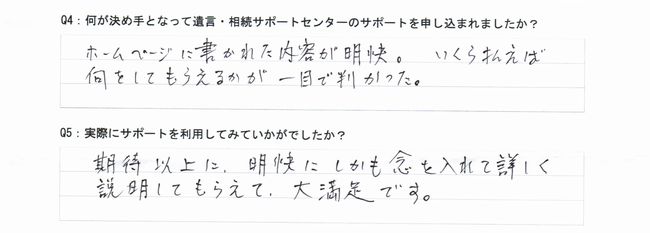 Q4：何が決め手となって遺言・相続サポートセンターのサポートを申し込まれましたか？
ホームページに書かれた内容が明快。 いくら払えば
何をしてもらえるかが一目で判かった。
Q5：実際にサポートを利用してみていかがでしたか？
期待以上に、明快にしかも念を入れて詳しく
説明してもらえて、大満足です。